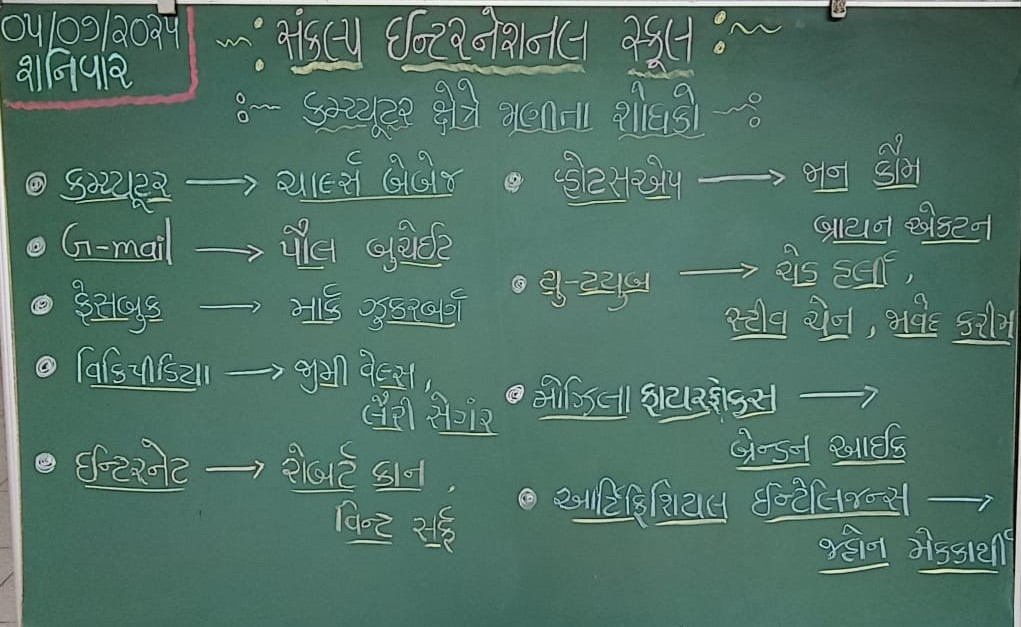 ૦૫/૦૭/૨૦૨૫
શનિવાર
સંકલ્પ ઈન્ટરનેશનલ સ્કૂલ
કમ્પ્યૂટર ક્ષેત્રે જાણીતા શોધકો
કમ્પ્યૂટર → ચાર્લ્સ બેબેજ
G-mail → પૌલ બુચેઈટ
ફેસબુક → માર્ક ઝુકરબર્ગ
વિકિપીડિયા → જીમી વેલ્સ,
લૈરી સેગંર
ઈન્ટરનેટ → રોબર્ટ કાન,
વિન્ટ સર્ફ
વ્હોટસએપ → જાન કૌમ
બ્રાયન એકટન
યુ-ટયુબ → ચેડ હર્લી,
સ્ટીવ ચેન, જાવેદ કરીમ
મોઝિલા ફાયરફોકસ →
બ્રેન્ડન આઈક
આર્ટિફિશિયલ ઈન્ટેલિજન્સ →
જ્હોન મેકકાર્થી